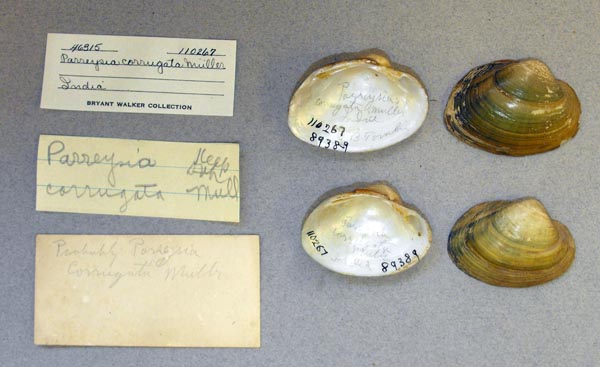 46915 110267
Parreysia corrugata Müller
India
BRYANT WALKER COLLECTION
Parreysia
corrugata Mull
Probably Parreysia
Corrugata Mull
Parreysia
110267
89389
110267
89389